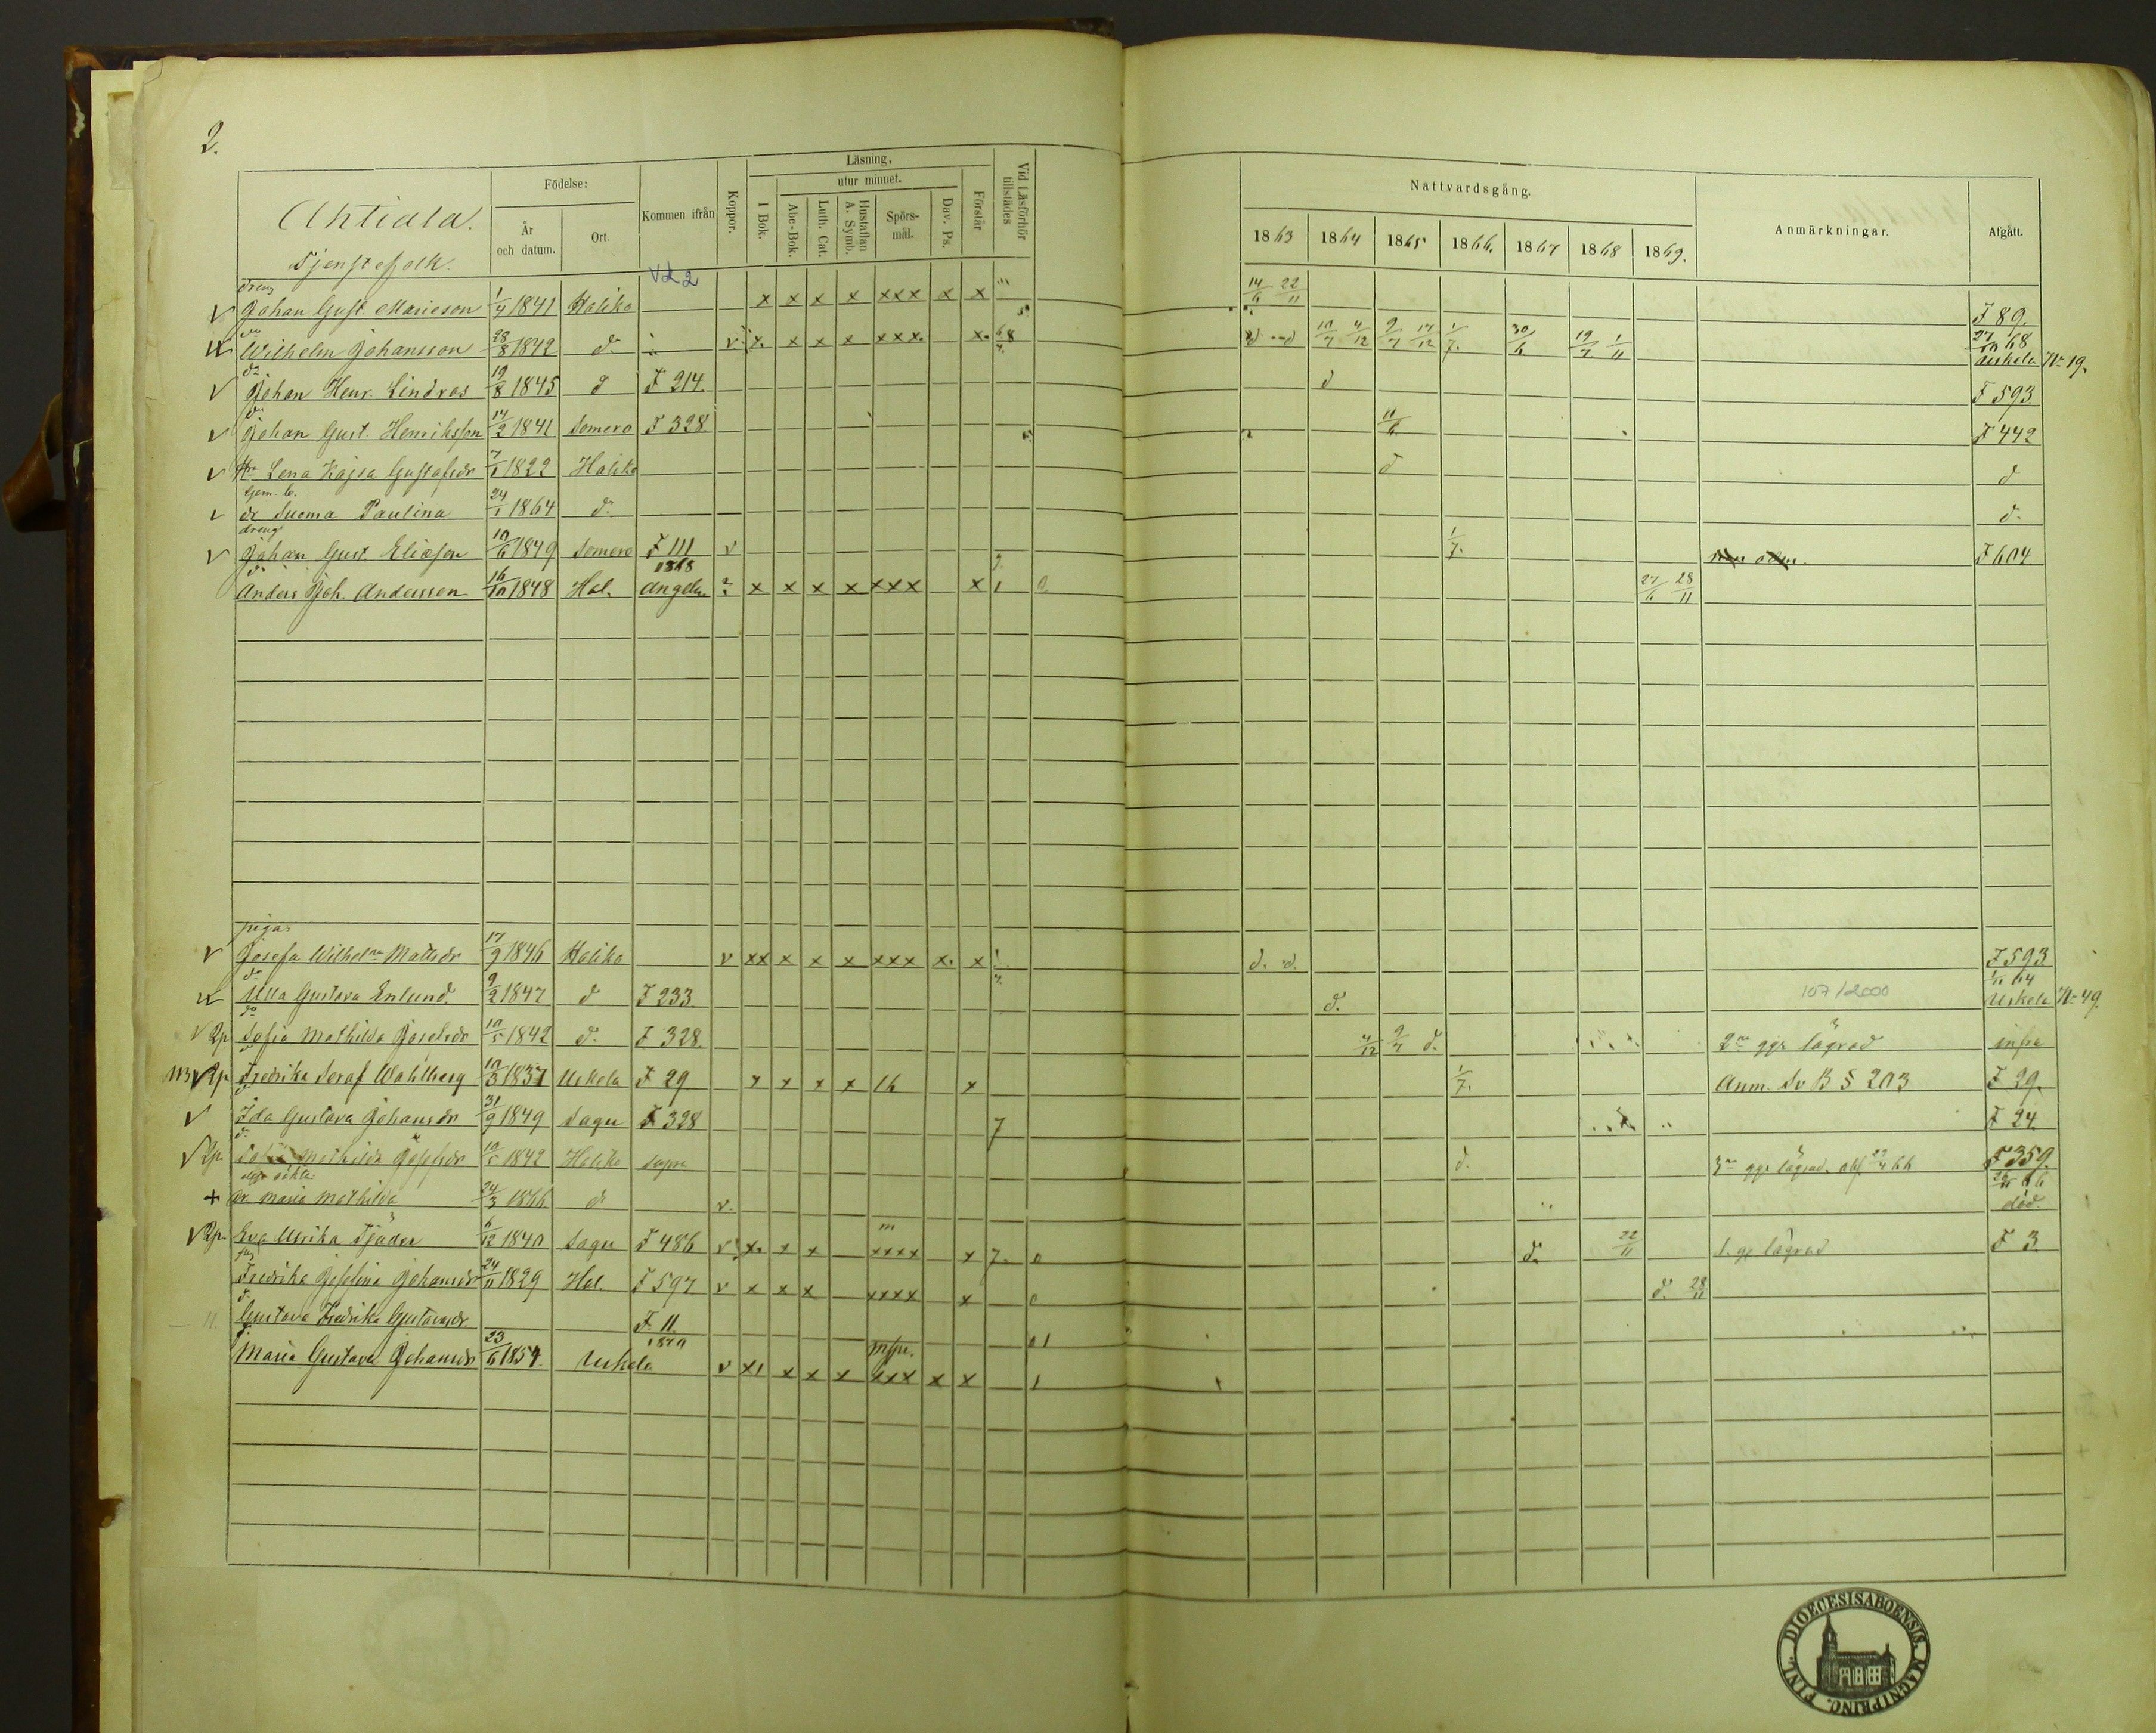 2.
Ahtiala.
Tjenstefolk.
Födelse:
År och datum.
Ort.
Kommen ifrån
Koppor.
Läsning.
I Bok.
utur minnet.
Abc-Bok.
Luth. Cat.
Hustaflan A. Symb.
Spörs-mål.
Dav. Ps.
Förstår
Vid Läsförhör tillstädes
Nattvardsgång.
1863 1864 1865 1866. 1867 1868 1869.
Anmärkningar.
Afgått.
Vd 2
dreng
v Johan Gust. Marieson 1/4 1841 Haliko x x x x xxx x x 14/6 22/11 F 89.
do
Wilhelm Johansson 28/8 1842 do v x. x x x xxx. x. 10/7 4/12 9/7 17/12 1/7. 30/6 19/7 1/11 27/10 68 Uskela No 19.
do
v Johan Henr. Lindros 19/8 1845 d F 214. d F 593
do
v Johan Gust. Henriksson 14/2 1841 Somero F 328. 11/6 F 442
v Hu Lena Kajsa Gustafsdr 7/1 1822 Haliko d d
v dr Suoma Paulina 24/1 1864 do d.
dreng
v Johan Gust. Eliasson 10/6 1849 Somero F 111 v 1/7. F 604
do
Anders Joh. Andersson 16/10 1848 Hal. 1868 Angela x x x x xxx x 1 0 27/6 28/11
piga
v Josefa Wilhelma Mattsdr 17/9 1846 Haliko v xx x x x xxx x. x d. d. F 593
do
Ulla Gustava Enlund. 9/2 1847 d F 233 d. 107/2000 64 Uskela No 49.
do
v Rp Sofia Mathilda Josefsdr 10/5 1842 do F 328. 4/12 9/7 d. 2ra ggr lägrad infra
v Rp Fredrika Seraf Wahlberg 10/3 1837 Uskela F 29 x x x x 16 x 1/7. Anm. Sv B § 203 F 29.
v Ida Gustava Johansdr 31/9 1849 Sagu F 328 7 F 24.
do
v Rp. Sofia Mathilda Josefsdr 10/5 1842 Haliko supra d. 3ra ggr lägrad. F 359.
oäkta
+ dr Maria Mathilda 24/3 1866 d v. 66 död.
v Rp. Eva Ulrika Sjöder 6/12 1840 Sagu F 486 v x. x x xxxx x 7. 0 d. 22/11 1. gg lägrad F 3.
Fredrika Josefina Johansdr 24/11 1829 Hal. F 597 v x x x xxxx x 0 d. 28/11
do
Gustava Fredrika Gustavsdr F. 11. 01
Maria Gustava Johansdr 23/6 1854. 1870 Uskela v x1 x x x xxx x x 1
FINL. DIOECESIS ABOENSIS. MAGNI PRINC.